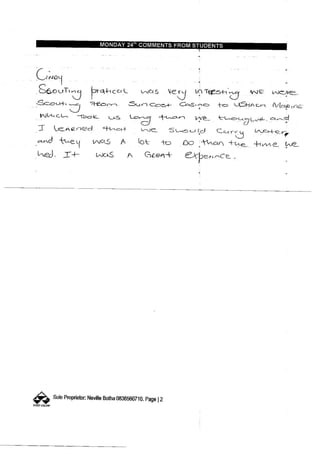 MONDAY 24TH COMMENTS FROM STUDENTS
Cindy
Scouting pratical was very intresting we were
Scouting from Sun coast Casino to Ushaka Marine
which took us long than we thought and
I learned that we should carry water
and they was a lot to do than the time we
had. It was a Great experience.
Sole Proprietor: Neville Botha 0836560710. Page | 2